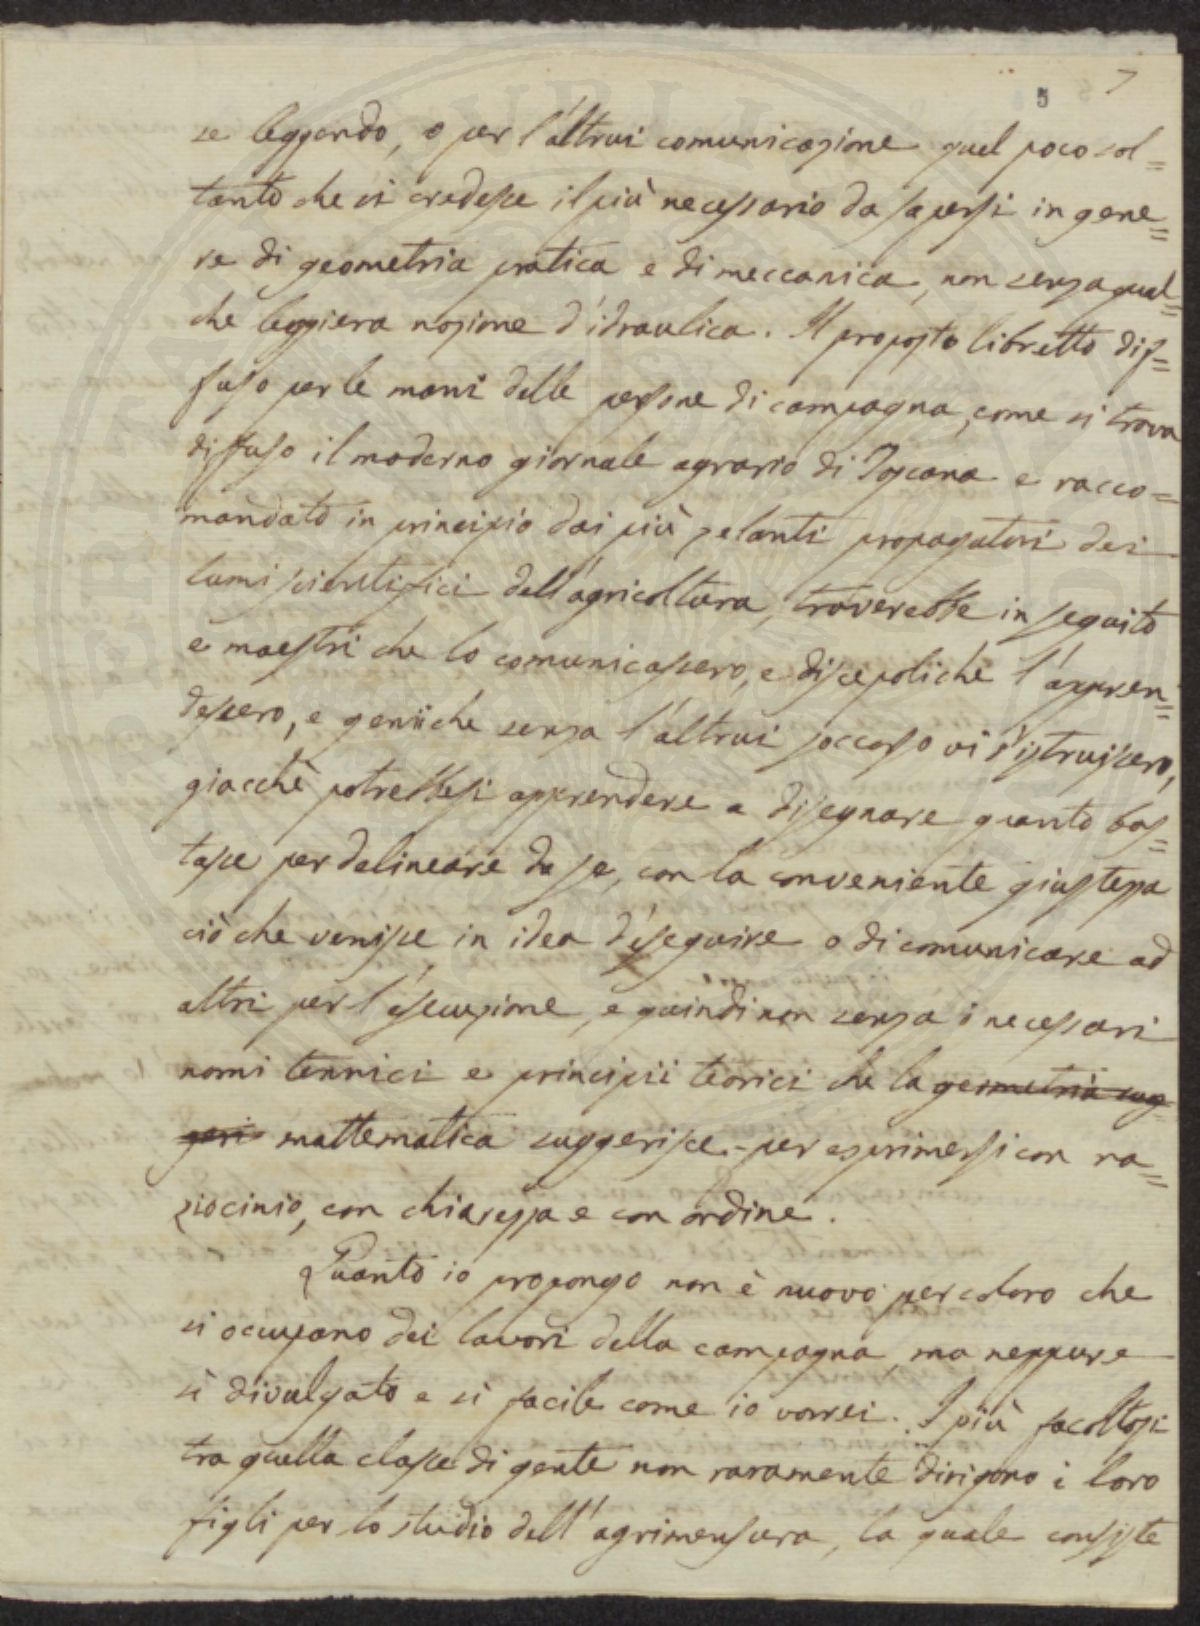 5 7
se leggendo, o per l'altrui comunicazione quel poco sol=
tanto che si credesse il più necessario da sapersi in gene=
re di geometria pratica e di meccanica, non senza qual=
che leggiera nozione d'idraulica. Il proposto libretto dif=
fuso per le mani delle persone di campagna, come si trova
diffuso il moderno giornale agrario di Toscana e racco=
mandato in principio dai più zelanti propagatori dei
lumi scientifici dell'agricoltura, troverebbe in seguito
e maestri che lo comunicassero, e discepoli che l'appren=
dessero, e genii che senza l'altrui soccorso vi s'istruissero,
giacchè potrebbesi apprendere a disegnare quanto bas=
tasse per delineare da se, con la conveniente giustezza
ciò che venisse in idea d'eseguire o di comunicare ad
altri per l'esecuzione, e quindi non senza i necessari
nomi tennici e principii teorici che la geometria sug
geri mattematica suggerisce per esprimersi con ra=
ziocinio, con chiarezza e con ordine.
Quanto io propongo non è nuovo per coloro che
si occupano dei lavori della campagna, ma neppure
sì divulgato e sì facile come io vorrei. I più facoltosi
tra quella classe di gente non raramente dirigono i loro
figli per lo studio dell'agrimensura, la quale consiste